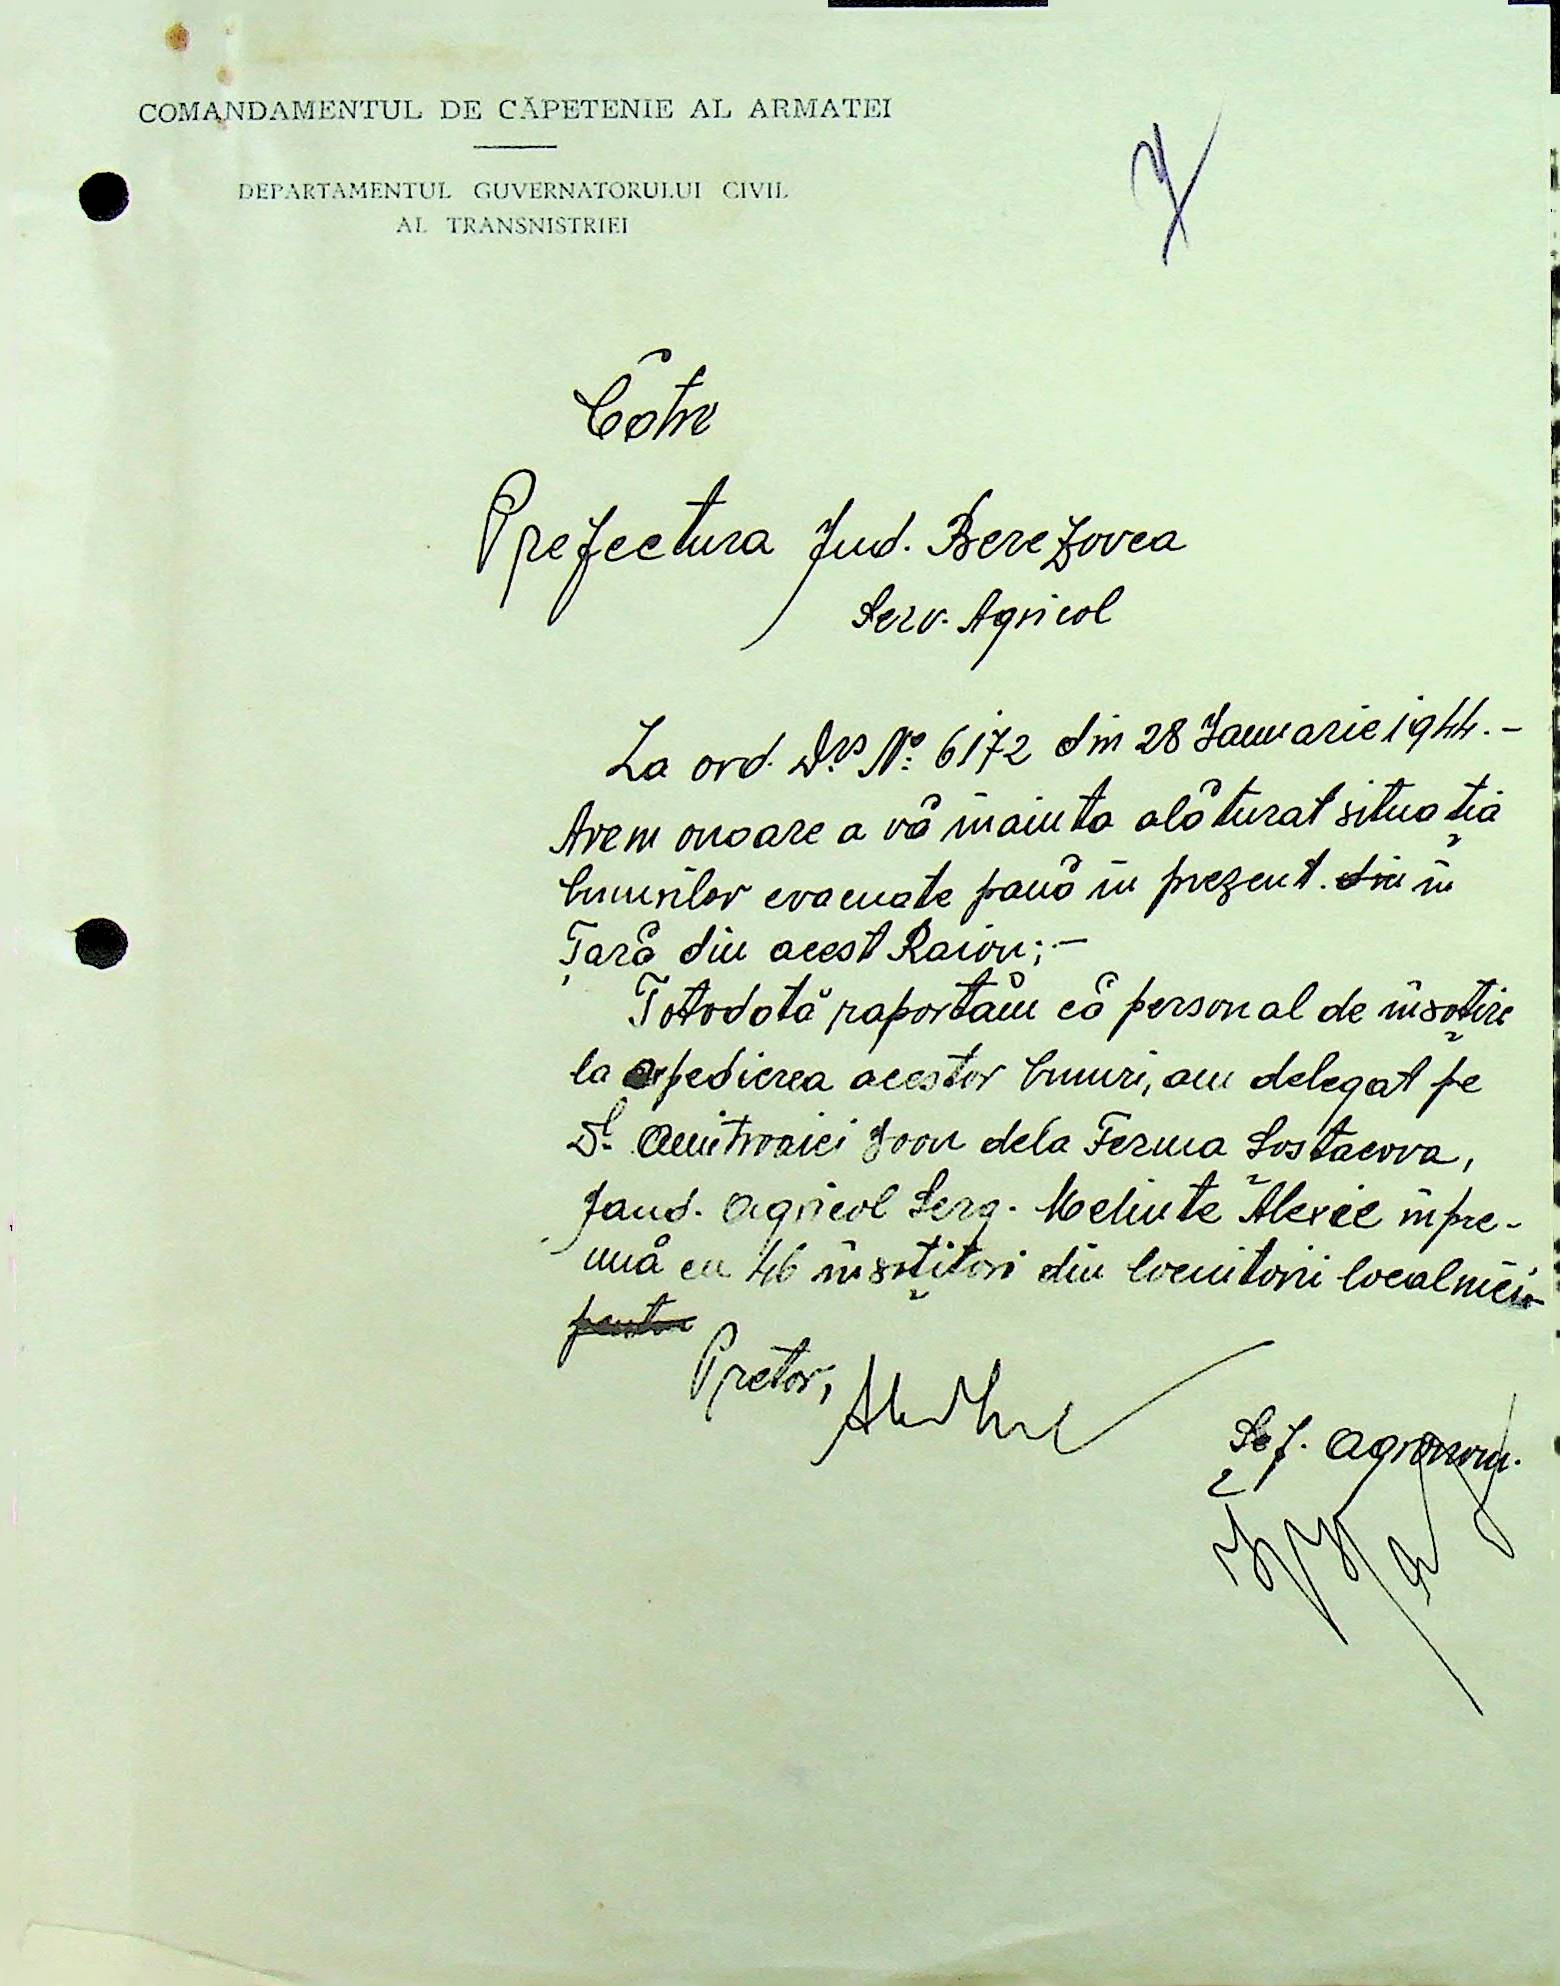 COMANDAMENTUL DE CĂPETENIE AL ARMATEI
DEPARTAMENTUL GUVERNATORULUI CIVIL
AL TRANSNISTRIEI
Către
Prefectura Jud. Berezovca
Serv. Agricol
La ord. Dvs No: 6172 din 28 Ianuarie 1944.-
Avem onoare a vă înainta alăturat situația
bunurilor evacuate până în prezent. din în
Țară din acest Raion;-
Totodată raportăm că personal de însoțire
la expedierea acestor bunuri, am delegat pe
Dl. Amitroaiei Ioan dela Ferma Șostacova,
Jand. agricol Serg. Melinte Alexie înpre-
ună cu 46 însoțitori din locuitorii localnici
pentru
Pretor,
Șef. agronom.